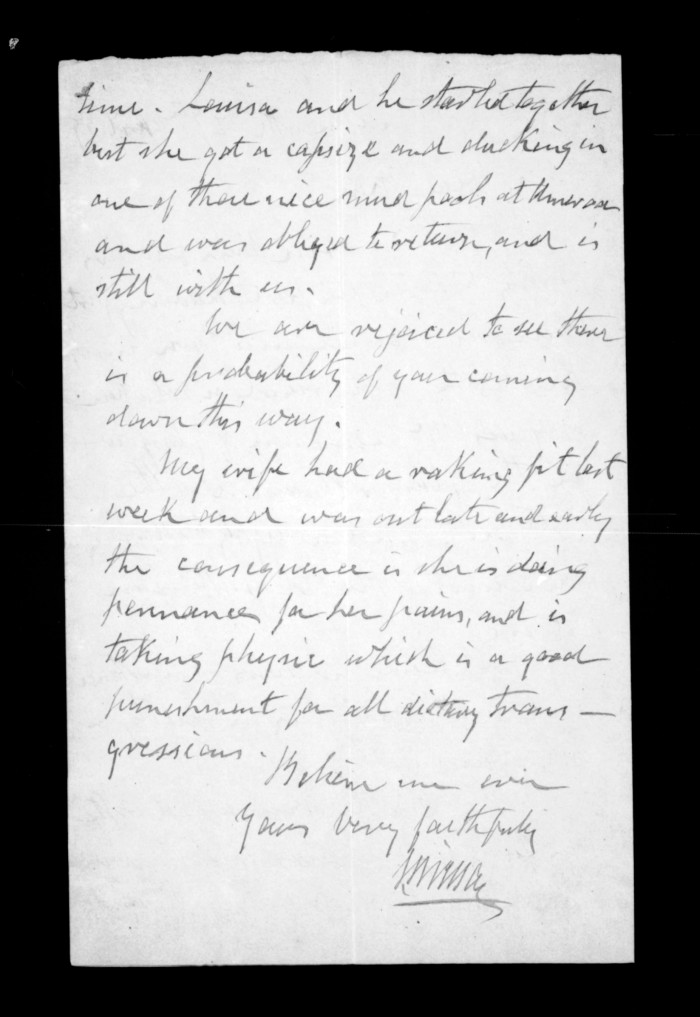 time. Louisa and he started together
but she got a capsize and ducking in
one of those nice mud pools at
and was obliged to return, and is
still with us.
We are rejoiced to see there
is a probability of your coming
down this way.
My wife had a raking fit last
week and was out late and early
the consequence is she is doing
pennance for her pains, and is
taking physic which is a good
punishment for all dietary trans-
gressions.
Believe me ever
Yours very faithfully